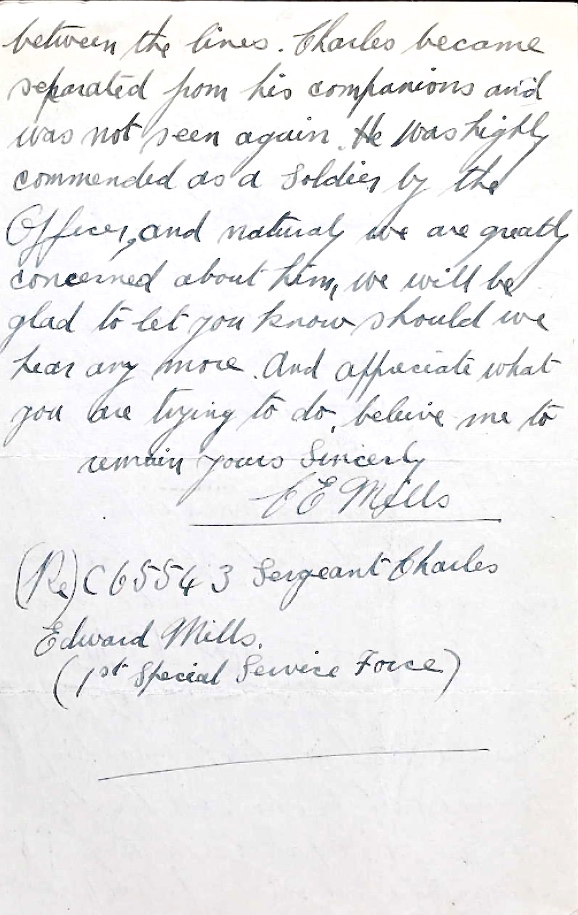 between the lines. Charles became
separated from his companions and
was not seen again. He was highly
commended as a Soldier by the
Officer, and naturaly we are greatly
concerned about him, we will be
glad to let you know should we
hear any more. And appreciate what
you are trying to do, beleive me to
remain yours Sincerly
C E Mills
(Re) C 65543 Sergeant Charles
Edward Mills.
(1st Special Service Force)